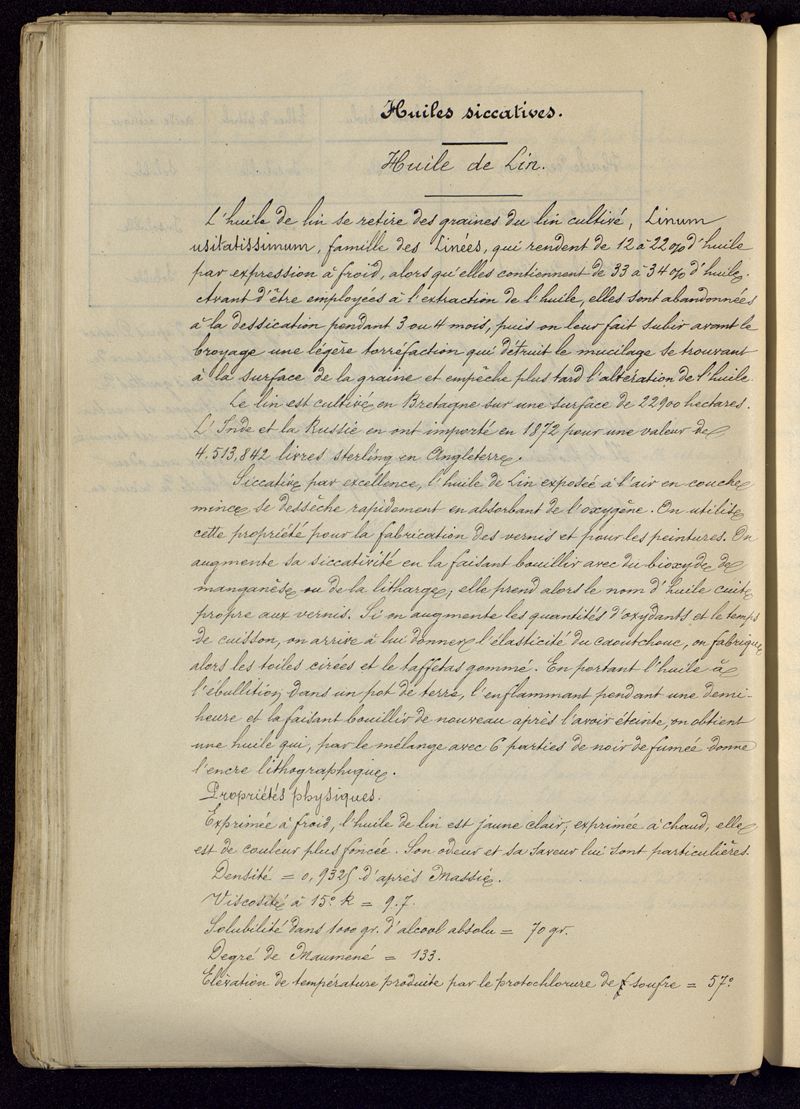 Huiles siccatives.
Huile de Lin.
L'huile de lin se retire des graines du lin cultivé, Linum
usitatissimum, famille des Linées, qui rendent de 12 à 22% d'huile
par expression à froid, alors qu'elles contiennent de 33 à 34% d'huile.
Avant d'être employées à l'extraction de l'huile, elles sont abandonnées
à la dessication pendant 3 ou 4 mois, puis on leur fait subir avant le
broyage une légère torréfaction qui détruit le mucilage se trouvant
à la surface de la graine et empêche plus tard l'altération de l'huile.
Le lin est cultivé en Bretagne sur une surface de 22900 hectares.
L'Inde et la Russie en ont importé en 1872 pour une valeur de
4.513,842 livres sterling en Angleterre.
Siccative par excellence, l'huile de Lin exposée à l'air en couche
mince se dessèche rapidement en absorbant de l'oxygène. On utilise
cette propriété pour la fabrication des vernis et pour les peintures. On
augmente sa siccativité en la faisant bouillir avec du bioxyde de
manganèse ou de la litharge, elle prend alors le nom d'huile cuite
propre aux vernis. Si on augmente les quantités d'oxydants et le temps
de cuisson, on arrive à lui donner l'élasticité du caoutchouc, on fabrique
alors les toiles cirées et le taffetas gommé. En portant l'huile à
l'ébullition dans un pot de terre, l'enflammant pendant une demi-
heure et la faisant bouillir de nouveau après l'avoir éteinte, on obtient
une huile qui, par le mélange avec 6 parties de noir de fumée donne
l'encre lithographique.
Propriétés physiques.
Exprimée à froid, l'huile de lin est jaune clair; exprimée à chaud, elle
est de couleur plus foncée. Son odeur et sa saveur lui sont particulières.
Densité = 0,9325 d'après Massie.
Viscosité à 15° k = 9.7.
Solubilité dans 1000 gr. d'alcool absolu = 70 gr.
Degré de Maumené = 133.
Elévation de température produite par le protochlorure de soufre = 57°